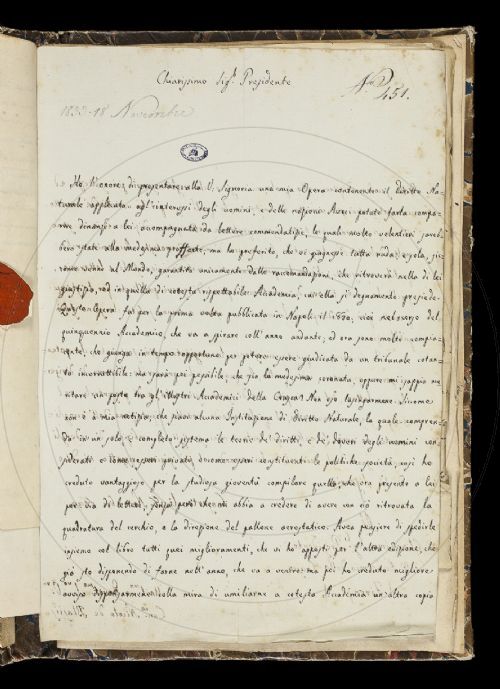 Chiarissimo Sig.r Presidente
N.o 451.
1833-18 Novembre
Ho l'onore di presentare alla S. Signoria una mia Opera contenente il diritto Na-
turale applicato agl'interessi degli uomini, e delle nazioni. Avrei potuto farla compa-
rire dinanzi a lei accompagnata da lettere commendatizie, le quali molto volentieri sareb-
bero state alla medesima profferte, ma ho preferito, che vi giugnesse tutta nuda, e sola, sic-
come venne al Mondo, garantita unicamente dalle raccomandazioni, che ritroverà nella di lei
giustizia, ed in quella di cotesta rispettabile Accademia, cui ella sì degnamente presiede.
Quest'Opera fu per la prima volta pubblicata in Napoli il 1830, cioè nel corso del
quinquennio Accademico, che va a spirare coll'anno andante, ed ora sono molto
che giunga in tempo opportuno per potere essere giudicata da un tribunale cotan-
to incorruttibile: ma sarà poi possibile, che sia la medesima coronata, oppure mi sappia me-
ritare un posto tra gl'illustri Accademici della Crusca? Non oso lusingarmene. Siccome
non è a mia notizia, che siavi alcuna Instituzione di Diritto Naturale, la quale compren-
da in un solo e completo sistema le teorie de' diritti, e de' doveri degli uomini con-
siderati e come esseri privati, e come esseri costituenti le politiche società, così ho
creduto vantaggioso per la studiosa gioventù compilare quella, che ora presento a lei
per via di lettere, senza però che mi abbia a credere di avere con ciò ritrovata la
quadratura del cerchio, e la direzione del pallone aerostatico. Avea pensiere di spedirle
insieme col libro tutti quei miglioramenti, che vi ho apposti per l'altra edizione, che
già sto disponendo di farne nell'anno, che va a venire: ma poi ho creduto migliore
avviso dispensarmene colla mira di umiliarne a cotesta Accademia un'altra copia